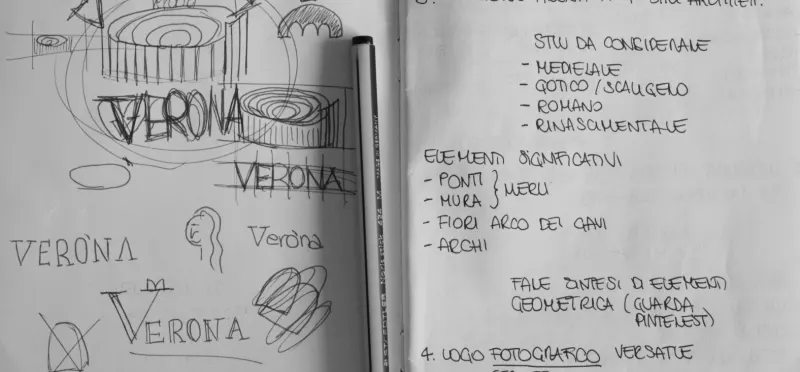 VERONA
VERONA
VERÒNA
Veròna
VERONA
STILI DA CONSIDERARE
- MEDIEVALE
- GOTICO / SCALIGERO
- ROMANO
- RINASCIMENTALE
ELEMENTI SIGNIFICATIVI
- PONTI
- MURA } MERLI
- FIORI ARCO DEI GAVI
- ARCHI
FARE SINTESI DI ELEMENTI
GEOMETRICA (GUARDA
PINTEREST)
4. LOGO FOTOGRAFICO VERSATILE